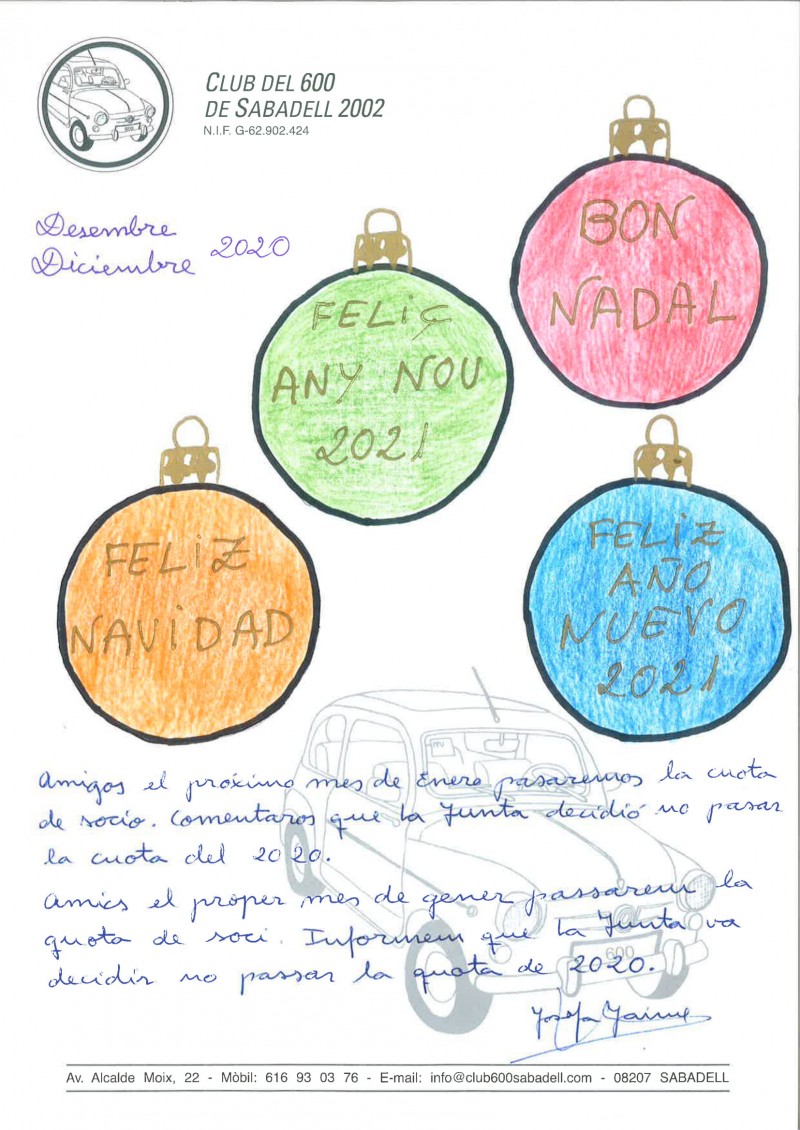 CLUB DEL 600
DE SABADELL 2002
N.I.F. G-62.902.424
Desembre
Diciembre 2020
BON
NADAL
FELIÇ
ANY NOU
2021
FELIZ
NAVIDAD
FELIZ
AÑO
NUEVO
2021
Amigos el próximo mes de Enero pasaremos la cuota
de socio. Comentaros que la Junta decidió no pasar
la cuota del 2020.
Amics el proper mes de gener passarem la
quota de soci. Informem que la Junta va
decidir no passar la quota de 2020.
600
Josefa Jaime
Av. Alcalde Moix, 22 - Mòbil: 616 93 03 76 - E-mail: info@club600sabadell.com - 08207 SABADELL